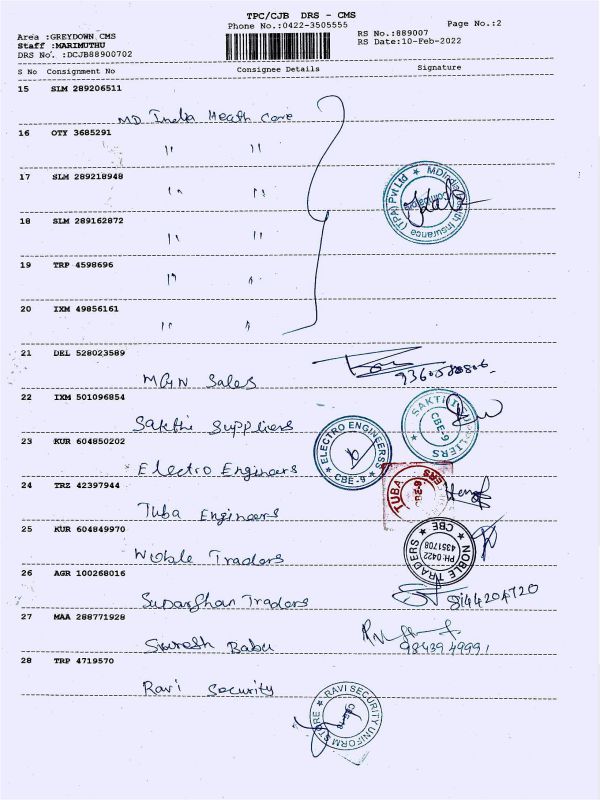 TPC/CJB DRS - CMS
Phone No.:0422-3505555
Page No.:2
Area :GREYDOWN CMS
RS No.:889007
Staff :MARIMUTHU
RS Date:10-Feb-2022
DRS No. :DCJB88900702
S No Consignment No Consignee Details Signature
15 SLM 289206511
MD India Heath Care
16 OTY 3685291
" "
17 SLM 289218948
" "
MDIndia Health Insurance (TPA) Pvt Ltd
18 SLM 289162872
" "
19 TRP 4598696
" "
20 IXM 49856161
" "
21 DEL 528023589
MGN Sales
22 IXM 501096854
Sakthi Suppliers
SAKTHI SUPPLIERS
CBE-9
23 KUR 604850202
Electro Engineers
ELECTRO ENGINEERSS
CBE-9
24 TRZ 42397944
Tuba Engineers
TUBA
25 KUR 604849970
Noble Traders
NOBLE TRADERS
PH:0422
4351708
CBE
26 AGR 100268016
Sudarshan Traders
8144204720
27 MAA 288771928
Suresh Babu
98439 49991
28 TRP 4719570
Ravi Security
RAVI SECURITY UNIFORM STORE